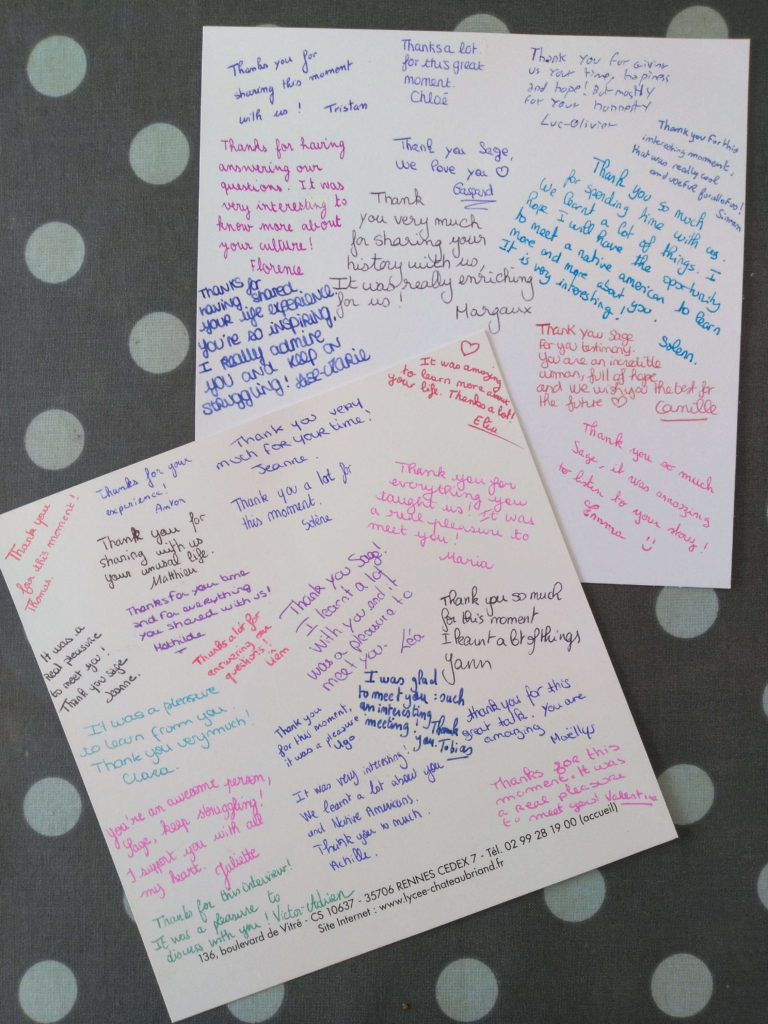 Thanks you for
sharing this moment
with us ! Tristan
Thanks a lot
for this great
moment.
Chloé
Thank you for giving
us your time, hapiness
and hope! But mostly
for your honnesty
Luc-Olivier
Thank you for this
interesting moment,
that was really cool
and useful for all of us!
Simon
Thanks for having
answering our
questions! It was
very interesting to
know more about
your culture!
Florence
Thank you Sage,
we love you ♡
Gaspard
Thank
you very much
for sharing your
history with us,
It was really enriching
for us !
Margaux
Thank you so much
for spending time with us.
We learnt a lot of things. I
hope I will have the opportunity
to meet a native american to learn
more and more about you.
It is very interesting!
Solenn.
Thanks for
having shared
your life experience.
you're so inspiring,
I really admire
you and keep on
struggling! Lise-Marie
Thank you Sage
For you testimony.
You are an incredible
woman, full of hope
and we wish you the best for
the future ♡ Camille
Thank you so much
Sage, it was amazing
to listen to your story!
Emma
♡
It was amazing
to learn more about
your life. Thanks a lot!
Elia
Thank you very
much for your time!
Jeanne.
Thanks for your
experience!
Anton
Thank you a lot for
this moment.
Solène
Thank you
for this moment!
Thomas.
Thank you for
sharing with us
your unusual life.
Matthieu
Thank you for
everything you
taught us! It was
a real pleasure to
meet you!
Maria
Thanks for your time
and for everything
you shared with us!
Mathilde
Thanks a lot for
answering our
questions!
Thank you Sage!
I learnt a lot
with you and it
was a pleasure to
meet you. Léa
Thank you so much
for this moment
I learnt a lot of things
Yann
It was a
real pleasure
to meet you!
Thank you Sage
Jeanne.
It was a pleasure
to learn from you.
Thank you very much!
Clara.
Thank you
for this moment,
it was a pleasure
Ugo.
I was glad
to meet you : such
an interesting
meeting! Thank
you. Tobias
thank you for this
great talk! You are
amazing
Maëllys
It was very interesting!
We learnt a lot about you
and Native Americans.
Thank you to much.
Achille.
Thanks for this
moment. It was
a real pleasure
to meet you! Valentine
You're an awesome person,
Sage, keep struggling!
I support you with all
my heart. Juliette
Thanks for this interview!
It was a pleasure to
discuss with you! Victor-Adrien
136, boulevard de Vitré - CS 10637 - 35706 RENNES CEDEX 7 - Tél. 02 99 28 19 00 (accueil)
Site Internet : www.lycee-chateaubriand.fr